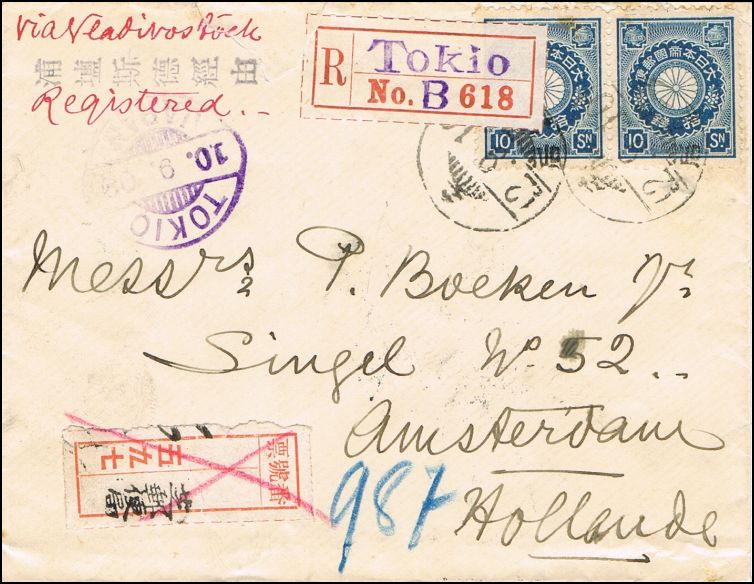 via Vladivostock
由經德斯壇浦
Registered..
R Tokio
No. B 618
大日本帝國郵便
拾錢
10 SN
大日本帝國郵便
拾錢
10 SN
TOKIO
10. 9.
Messrs P. Boeken Jr
Singel No 52..
Amsterdam
Hollande
987
票號番
五九七
郵便局